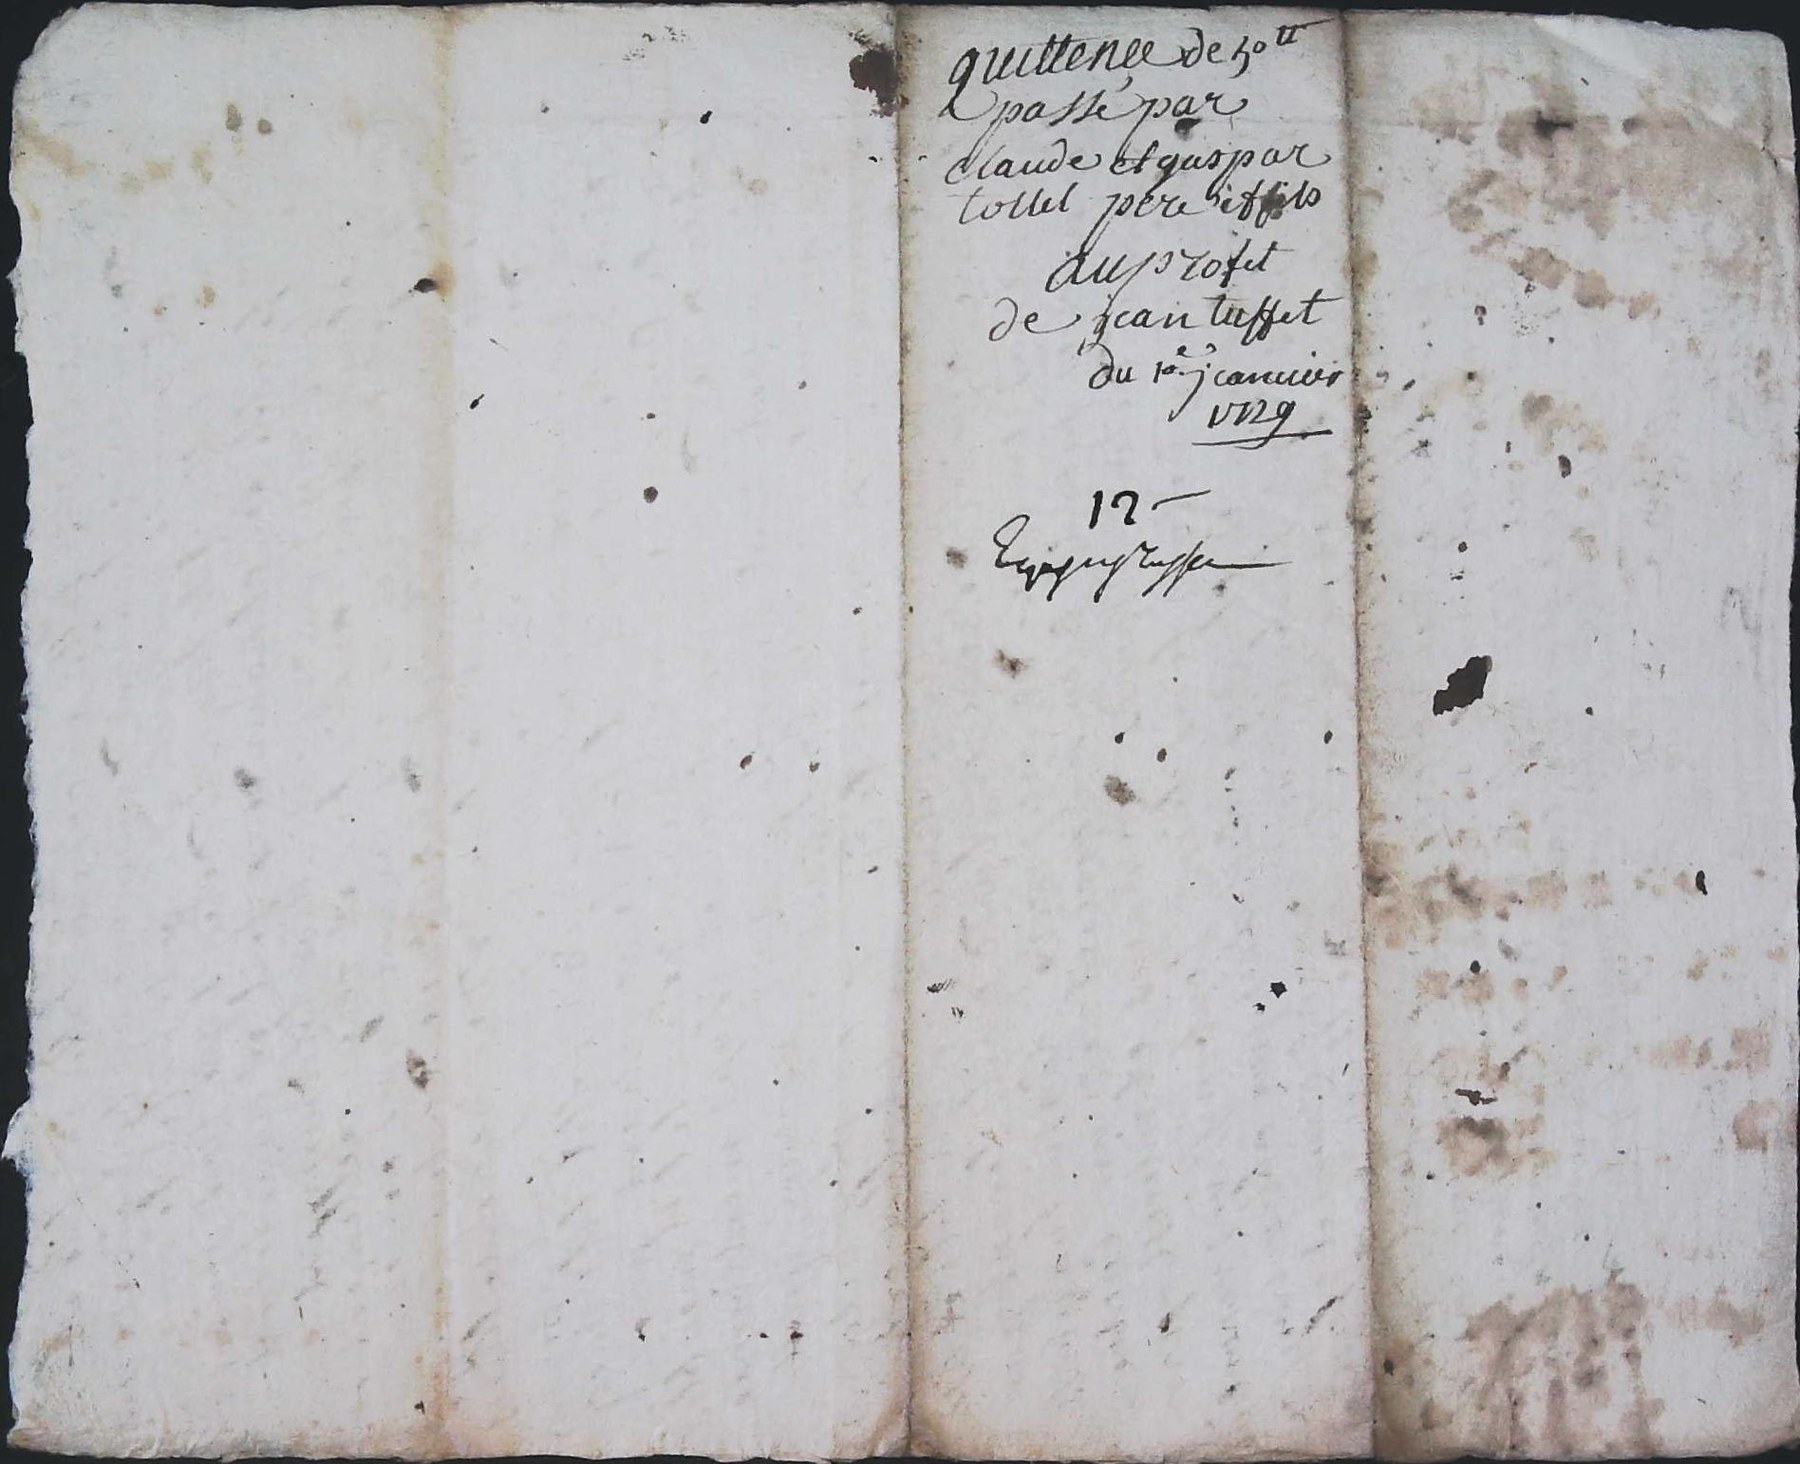 quittence de 50tt
passé par
claude et gaspar
tollet pere et fils
au profet
de jean tuffet
du 10e janvier
1729
12